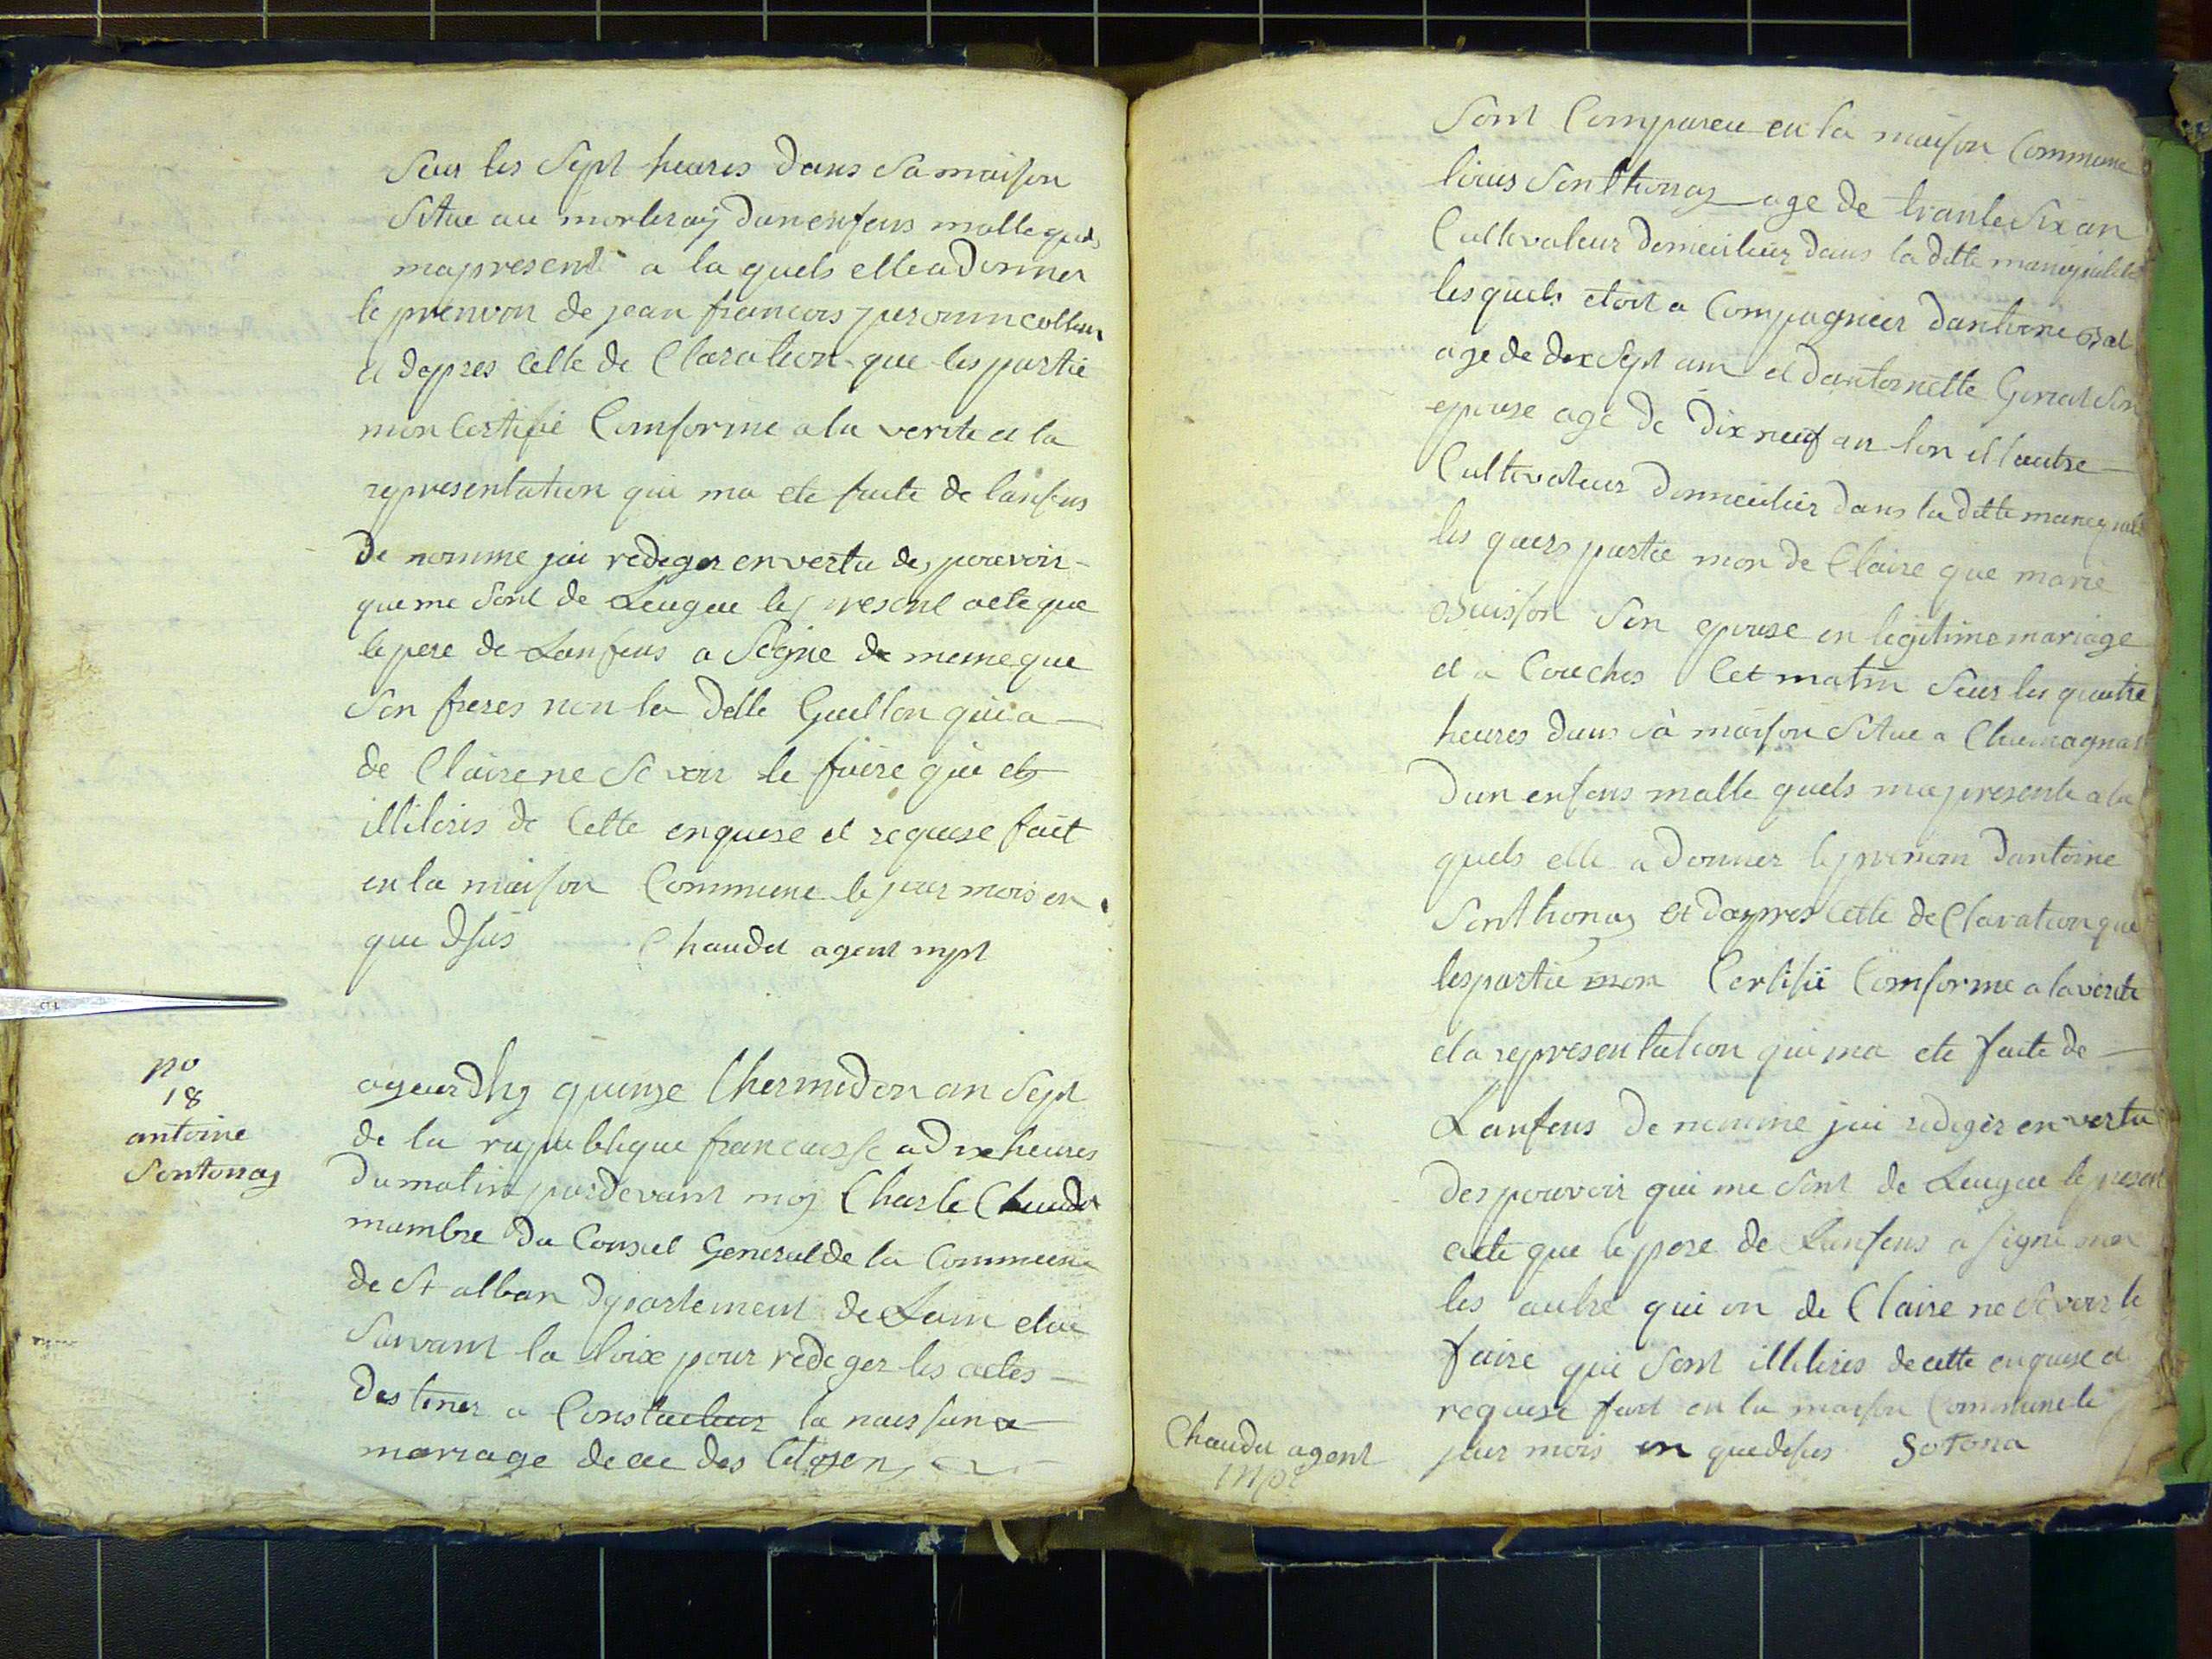 Seur les Sept heures dans Sa maison
Situe au morteray dun enfens malle quels
ma present a la quels elle a donner
le prenom de jean francois
et dapres Cette de Claration que les partie
mon Certifié Comforme a la verite et la
representation qui ma ete faite de lanfens
de nomme jai rediger en vertu des pouvoir
que me Sont de Leugue le present acte que
le pere de Lanfens a Signe de meme que
Son freres non la delle Guillon qui a
de Claire ne Scavoir le faire qui et
illiteris de Cette enquese et requese fait
en la maison Commune le jour mois en
que dsus Chaudet agent mpl
no
18
antoine
Sontonas
ajeurdhy quinze thermidor an Sept
de la rupublique francaisse a dix heures
du matin par devant moy Charle Chaudet
mambre du Conseil General de la Commeune
de St alban departement de Lain elue
Suivant la loix pour rediger les actes
destiner a Constateur la naissance
mariage dece des Citoyens
Sont Compareu en la maison Commune
louis Sonthonas age de trante Six an
Cultivateur domeicilieir dans la ditte maneqalite
lesquels etoit a Compagneier dantoine Bal
age de dix Sept ann et dantoinette Goriat Son
epouse age de dix neuf an lon et lautre
Cultivateur domeicilieir dans la ditte
les quers partie mon de Claire que marie
Buisson Son epouse en legitime mariage
et a Couches Cet matin Seur les quatre
heures dans Sa maison Situe a Chamagnat
dun enfens malle quels ma presente a la
quels elle a donner le prenom dantoine
Sonthonas Et dapres Cette de Claration que
les partie mon Certifié Comforme a la verite
et a representation qui ma ete faite de
Lanfens de nomme jai rediger en vertu
des pouvoir qui me Sont de Leugue le present
acte que le pere de Lanfens a Signe non
les autre qui on de Claire ne Scavoir le
faire qui Sont illiteris de cette enquese et
requese fait en la maison Commune le
jour mois en que desus Sotona
Chaudet agent
mpl